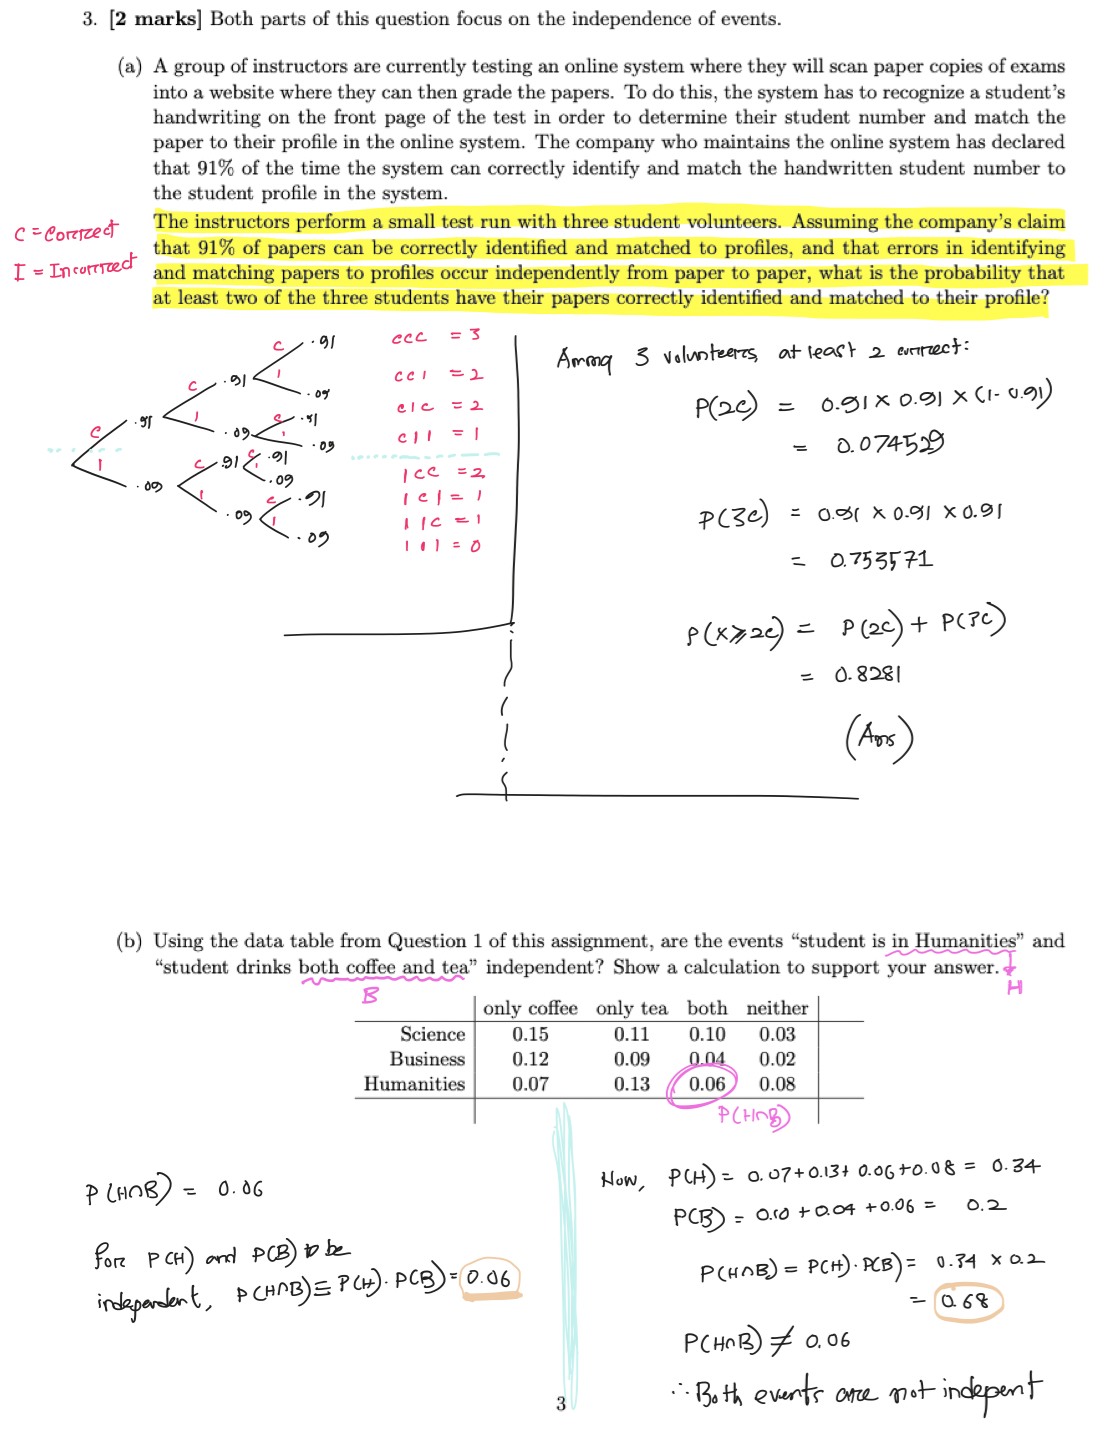 3. [2 marks] Both parts of this question focus on the independence of events.
(a) A group of instructors are currently testing an online system where they will scan paper copies of exams
into a website where they can then grade the papers. To do this, the system has to recognize a student's
handwriting on the front page of the test in order to determine their student number and match the
paper to their profile in the online system. The company who maintains the online system has declared
that 91% of the time the system can correctly identify and match the handwritten student number to
the student profile in the system.
The instructors perform a small test run with three student volunteers. Assuming the company's claim
that 91% of papers can be correctly identified and matched to profiles, and that errors in identifying
and matching papers to profiles occur independently from paper to paper, what is the probability that
at least two of the three students have their papers correctly identified and matched to their profile?
C = Correct
I = Incorrect
C .91
I .09
C .91
I .09
C .91
I .09
C .91
I .09
C .91
I .09
C .91
I .09
C .91
I .09
CCC = 3
CCI = 2
CIC = 2
CII = 1
ICC = 2
ICI = 1
IIC = 1
III = 0
Among 3 volunteers, at least 2 correct:
P(2C) = 0.91 × 0.91 × (1 - 0.91)
= 0.074529
P(3C) = 0.91 × 0.91 × 0.91
= 0.753571
P(X⩾2C) = P(2C) + P(3C)
= 0.8281
(Ans)
(b) Using the data table from Question 1 of this assignment, are the events "student is in Humanities" and
"student drinks both coffee and tea" independent? Show a calculation to support your answer.
B
H
only coffee only tea both neither
Science 0.15 0.11 0.10 0.03
Business 0.12 0.09 0.04 0.02
Humanities 0.07 0.13 0.06 0.08
P(H∩B)
P(H∩B) = 0.06
for P(H) and P(B) to be
independent, P(H∩B) ≡ P(H). P(B) = 0.06
Now, P(H) = 0.07+0.13+ 0.06+0.08 = 0.34
P(B) = 0.10 + 0.04 + 0.06 = 0.2
P(H∩B) = P(H). P(B) = 0.34 × 0.2
= 0.68
P(H∩B) ≠ 0.06
∴ Both events are not indepent
3